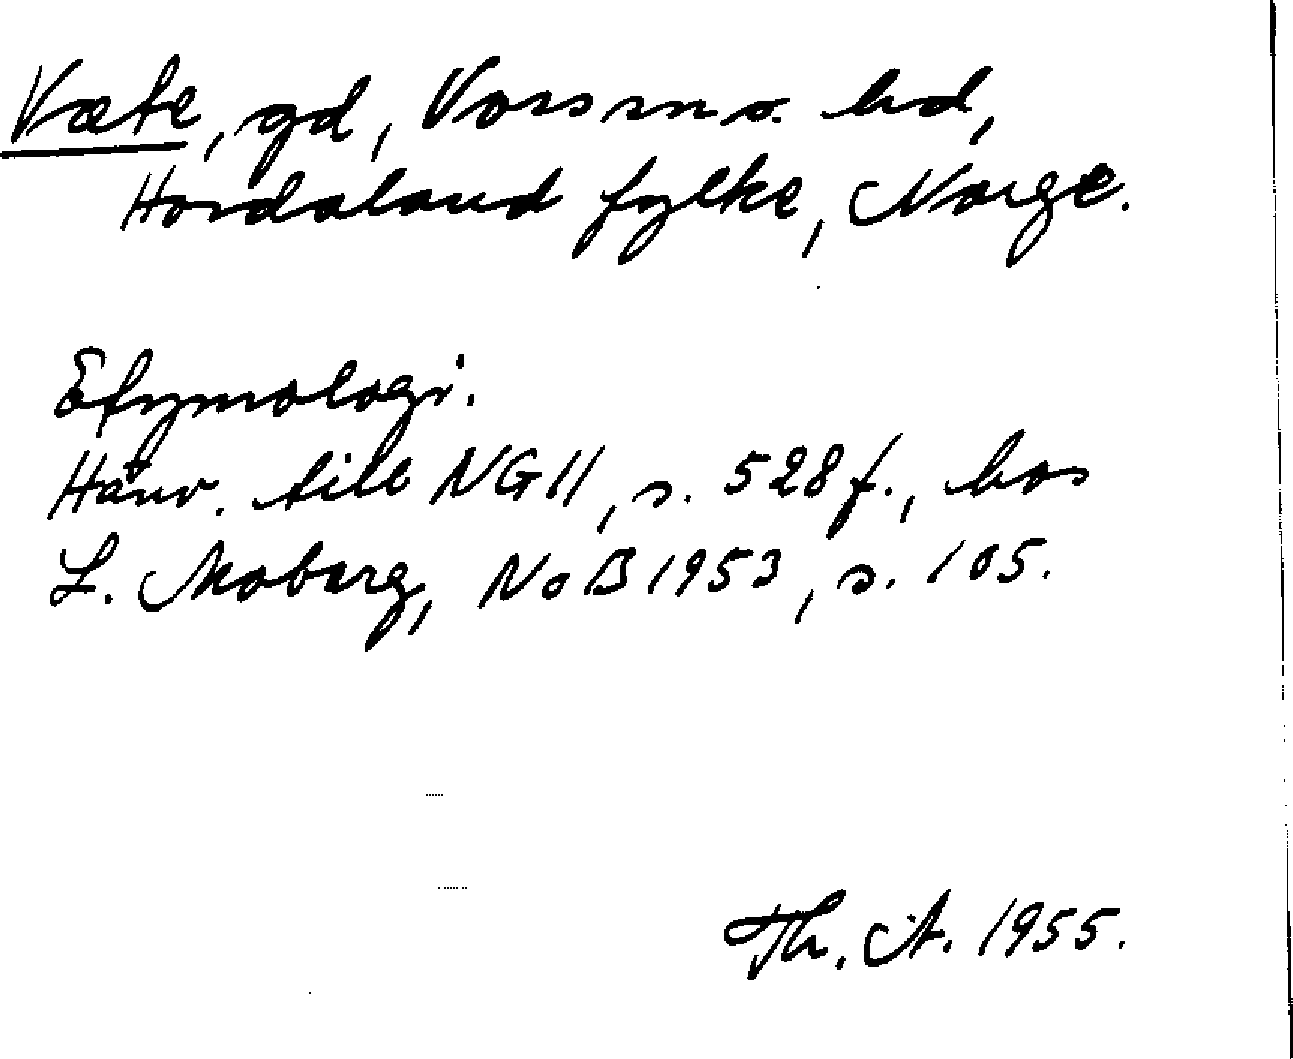 Væte, gd, Vossms. hd,
Hordaland fylke, Norge.
Etymologi.
Hänv. till NG 11, s. 528 f., hos
L. Moberg, NoB 1953, s. 105.
Th. A. 1955.